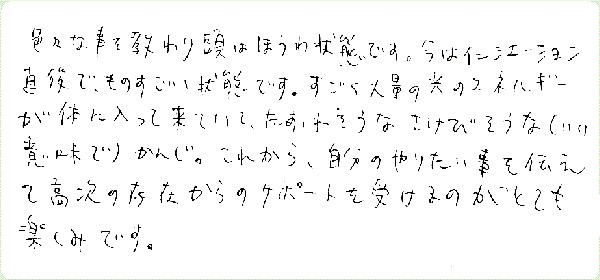 色々な事を教わり頭はほうわ状態です。今はイニシエーション
直後で、ものすごい状態です。すごく大量の光のエネルギー
が体に入って来ていて、たおれそうな さけびそうな(いい
意味で)かんじ。これから、自分のやりたい事を伝え
て高次の存在からのサポートを受けるのがとても
楽しみです。